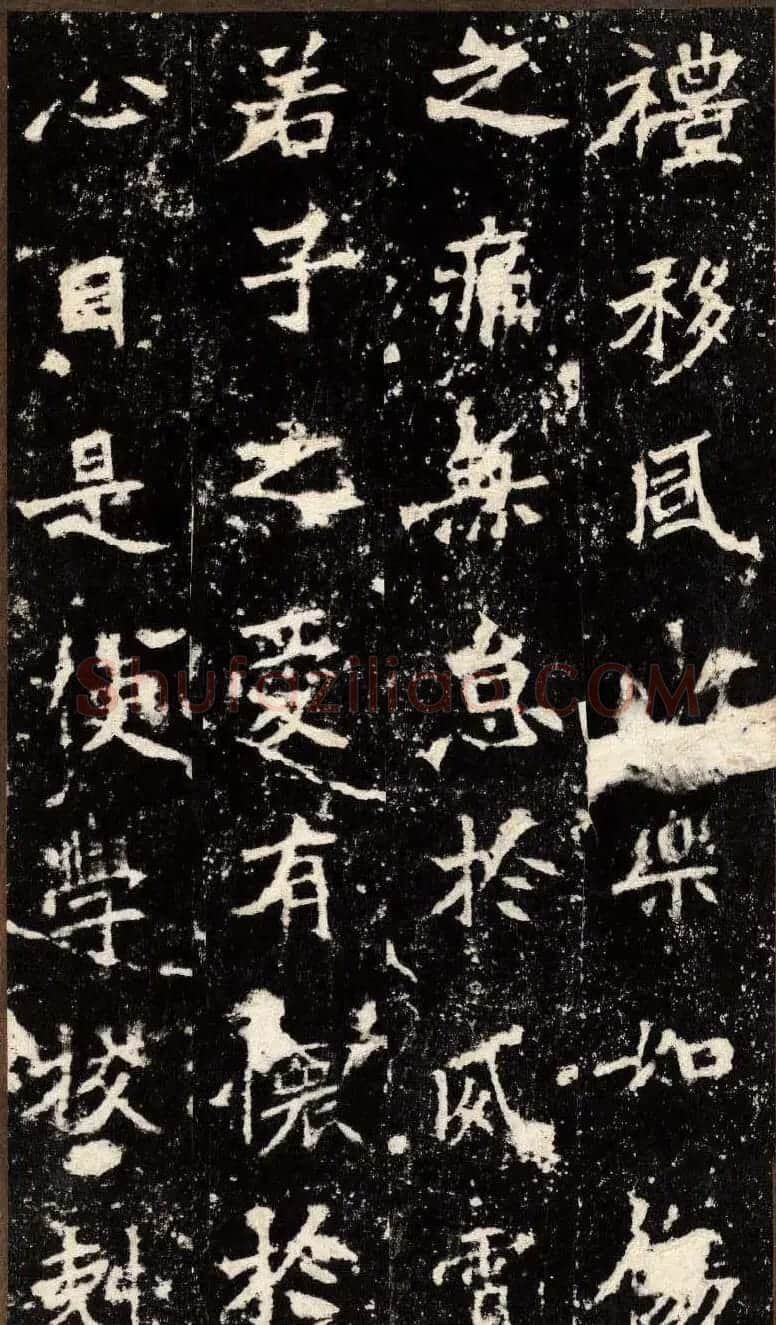 禮移風之樂如傷
之痛無怠於夙霄
若子之愛有懷於
心目是使學校剋
Shufaziliao.COM